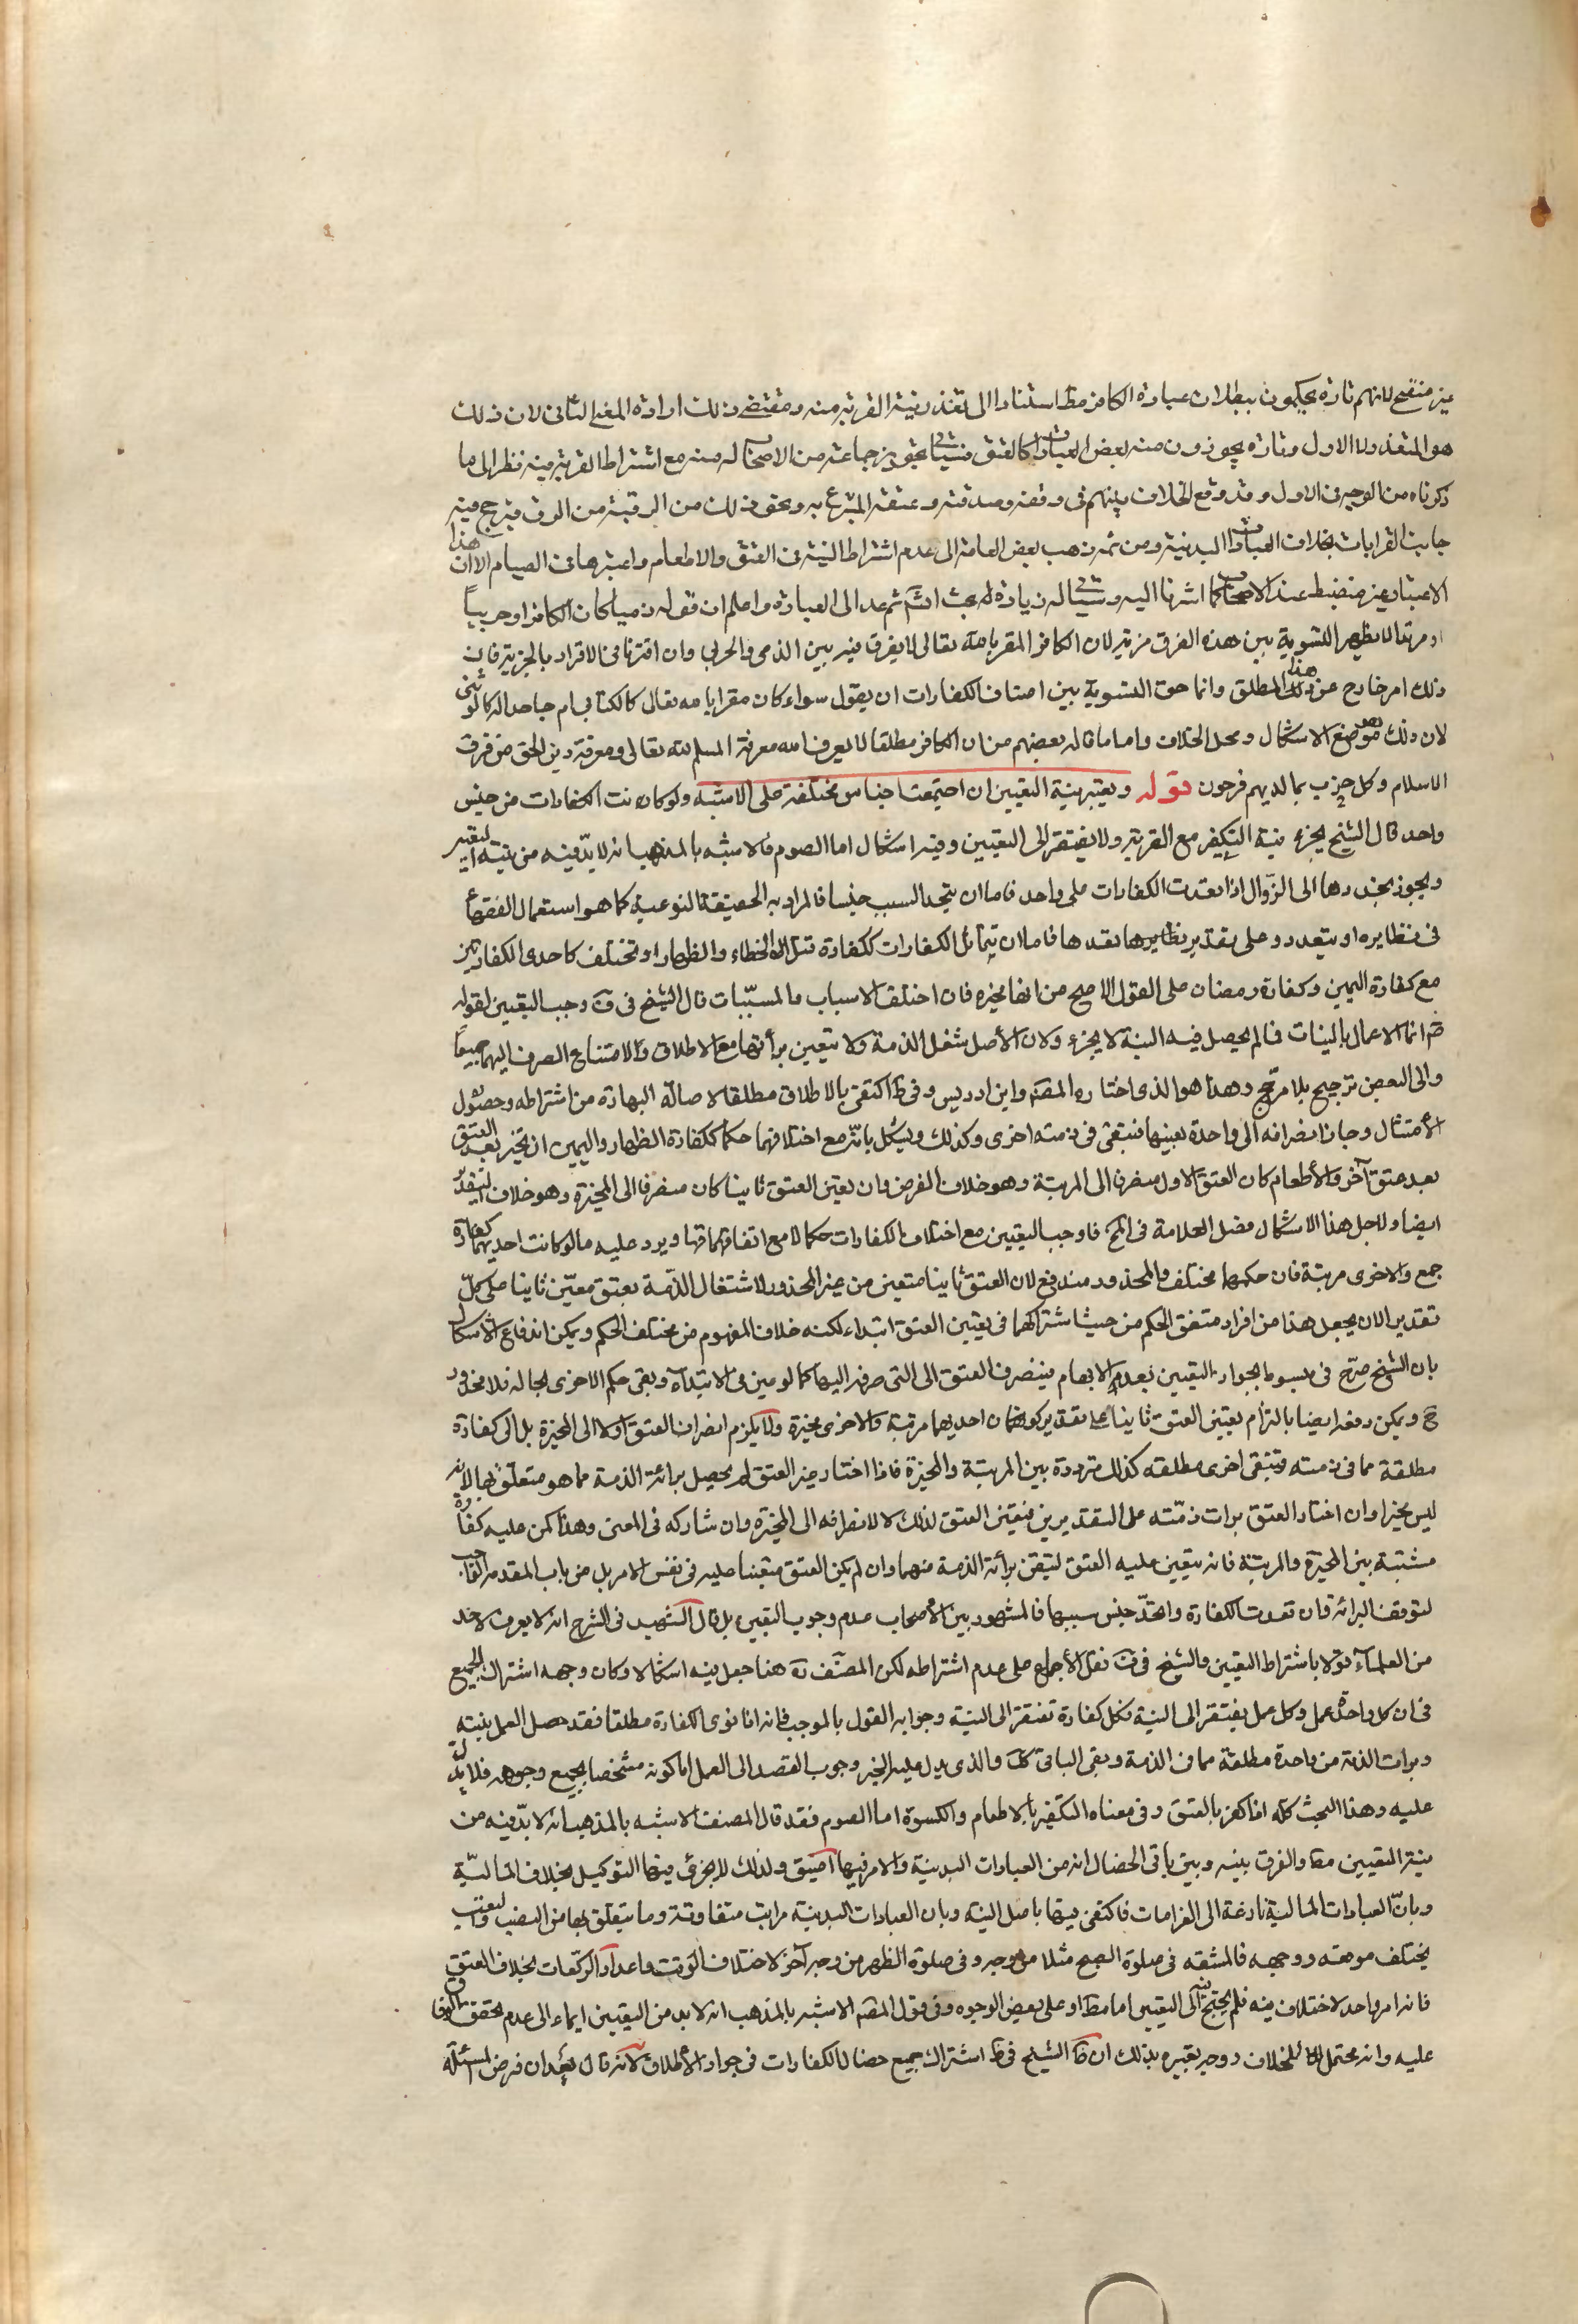 غير منقح لانهم تارة يحكمون ببطلان عبادة الكافر مط استنادا الى تعذر نية القربة منه ومقتضى ذلك ارادة المعنى الثانى لان ذلك
هو المتعذر ولا الاول وتارة يجوزون منه بعض العبادات كالعتق فسياتى تجويز جماعة من الاصحاب له منه مع اشتراط القربة فيه نظرا الى ما
ذكرناه من الوجه فى الاول وقد وقع الخلاف بينهم فى وقفه وصدقته وعتقه المتبرع به ونحو ذلك من الرقبة من الرق فترجح فيه
جانب القرابات بخلاف العبادات البدنية ومن ثم ذهب بعض العامة الى عدم اشتراط النية فى العتق والاطعام واعتبرها فى الصيام الا ان هذا
الاعتبار غير منضبط عند الاصحاب كما اشرنا اليه وسياتى له زيادة بحث انشه ثم عد الى العبارة واعلم ان قوله ذميا كان الكافر او حربيا
او مرتدا لا يظهر للتسوية بين هذه الفرق مزية لان الكافر المقر بالله تعالى لا يفرق فيه بين الذمى والحربى وان افترقا فى الاقرار بالجزية فان
ذلك امر خارج عن هذا المطلق وانما حق التسوية بين اصناف الكفارات ان يقول سواء كان مقرا بالله تعالى كالكتابى ام جاحدا له كالوثنى
لان ذلك موضع الاشكال ومحل الخلاف واما ما قاله بعضهم من ان الكافر مطلقا لا يعرف الله معرفة المسلم لله تعالى ومعرفة دين الحق من فرق
الاسلام وكل حزب بما لديهم فرحون قوله ويعتبر نية التعيين ان اجتمعت اجناس مختلفة على الاشبه ولو كانت الكفارات من جنس
واحد قال الشيخ يجزى نية التكفير مع القربة ولا يفتقر الى التعيين وفيه اشكال اما الصوم فالاشبه بالمذهب انه لا بد فيه من نية التعيير
ويجوز تجديدها الى الزوال اذا تعددت الكفارات على واحد فاما ان يتحد السبب جنسا فالمراد به الحقيقة النوعية كما هو استعمال الفقهاء
فى نظايره او يتعدد وعلى تقدير تعددها فاما ان تتماثل الكفارات ككفارة قتل الخطاء والظهار او تختلف كاحدى الكفارتين
مع كفارة اليمين وكفارة رمضان على القول الاصح من انها مخيرة فان اختلف الاسباب والمسببات قال الشيخ فى ف وجب التعيين لقوله
ص انما الاعمال بالنيات فما لم يحصل فيه النية لا يجزى ولان الأصل شغل الذمة ولا تتعين برائتها مع الاطلاق والامتناع الصرف اليهما جميعا
والى البعض ترجيح بلا مرجح وهذا هو الذى اختاره المصنف وابن ادريس وفى ط اكتفى بالاطلاق مطلقا لاصالة البرائة من اشتراطه وحصول
الأمتثال وجاز انصرافه الى واحدة بعينها فتبقى فى ذمته اخرى وكذلك ويشكل بانه مع اختلافهما حكما ككفارة الظهار واليمين ان يخير بعد العتق
بعد عتق آخر والأطعام كان العتق الاول منصرفا الى المرتبة وهو خلاف الفرض وان تعين العتق ثانيا كان منصرفا الى المخيرة وهو خلاف التقدير
ايضا ولاجل هذا الاشكال فصل العلامة فى المخ فاوجب التعيين مع اختلاف الكفارات حكما لا مع اتفاقها ويرد عليه ما لو كانت احديهما كفارة
جمع والاخرى مرتبة فان حكمهما مختلف والمحذور مندفع لان العتق ثانيا متعين من غير المحذور لاشتغال الذمة بعتق معين ثانيا على كل
تقدير الا ان يجعل هذا من افراد متفق الحكم من حيث اشتراكهما فى تعيين العتق ابتداء لكنه خلاف المفهوم من مختلف الحكم ويمكن اندفاع الاشكال
بان الشيخ صرح فى مبسوط بجواز التعيين بعد الابهام فينصرف العتق الى التى صرفه اليها كما لو عين فى الابتداء وبقى حكم الاخرى بحاله فلا محذور
ح ويمكن دفعه ايضا بالتزام تعيين العتق ثانيا على تقدير كون احديهما مرتبة والاخرى مخيرة ولا يلزم انصراف العتق اولا الى المخيرة بل الى كفارة
مطلقة مما فى ذمته فتبقى اخرى مطلقه كذلك مترددة بين المرتبة والمخيرة فاذا اختار غير العتق لم يحصل برائة الذمة مما هو متعلق بها لانه
ليس مخيرا وان اختار العتق برات ذمته على التقديرين فتعين العتق لذلك لا لانصرافه الى المخيرة وان شاركه فى المعنى وهذا كمن عليه كفارة
مشتبة بين المخيرة والمرتبة فانه يتعين عليه العتق لتيقن برائة الذمة منهما وان لم يكن العتق متعينا عليه فى نفس الامر بل من باب المقدمة الواجب
لتوقف البرائة فان تعددت الكفارة واتحد جنس سببها فالمشهور بين الأصحاب عدم وجوب التعيين بل قال الشهيد فى الشرح انه لا يعرف لاحد
من العلماء قولا باشتراط التعيين والشيخ فى ف نقل الأجماع على عدم اشتراطه لكن المصنف ره هنا جعل فيه اشكالا وكان وجهه اشتراك الجميع
فى ان كل واحدة عمل وكل عمل يفتقر الى النية فكل كفارة تفتقر الى النية وجوابه القول بالموجب فانه اذا نوى الكفارة مطلقا فقد حصل العمل بنيته
وبرات الذمة من واحدة مطلقة مما فى الذمة وبقى الباقى كك والذى يدل عليه الخبر وجوب القصد الى العمل اما كونه مشخصا بجميع وجوهه فلا يدل
عليه وهذا البحث كله اذا كفر بالعتق وفى معناه التكفير بالاطعام والكسوة اما الصوم فقد قال المصنف الاشبه بالمذهب انه لا بد فيه من
نية التعيين مط والفرق بينه وبين باقى الخصال انه من العبادات البدنية والامر فيها اضيق ولذلك لا يجزى فيها التوكيل بخلاف المالية
وبان العبادات المالية نازعة الى الغرامات فاكتفى فيها باصل النية وبان العبادات البدنية مراتب متفاوتة وما يتعلق بها من النصب والتعب
يختلف موقعه ووجهه فالمشقه فى صلوة الصبح مثلا من وجه وفى صلوة الظهر من وجه آخر لاختلاف الوقت واعداد الركعات بخلاف العتق
فانه امر واحد لا اختلاف فيه فلم يحتج الى التعيين اما مط او على بعض الوجوه وفى قول المصنف الاشبه بالمذهب انه لا بد من التعيين ايماء الى عدم تحقق الوفاق
عليه وانه محتمل للخلاف ووجه تعبيره بذلك ان ظ الشيخ فى ط اشتراك جميع خصال الكفارات فى جواز الأطلاق لانه قال بعد ان فرض المسئلة